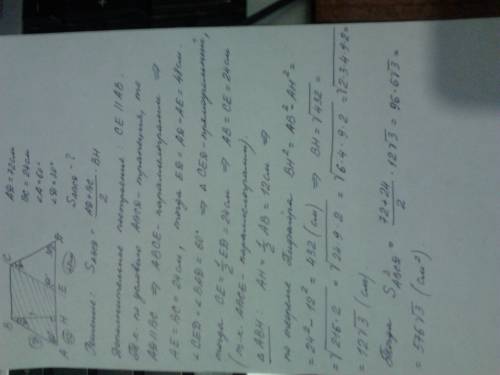 AD = 72 см
BC = 24 см
∠A = 60°
∠D = 30°
S_ABCD - ?
B C
A H E D
Решение: S_ABCD = (AD + BC)/2 · BH
Дополнительное построение: CE || AB.
Т.к. по условию ABCD - трапеция, то
AD || BC ⇒ ABCE - параллелограмм ⇒
AE = BC = 24 см, тогда ED = AD - AE = 48 см.
∠CED = ∠BAD = 60° ⇒ △CED - прямоугольный,
тогда CE = 1/2 ED = 24 см ⇒ AB = CE = 24 см
(т.к. ABCE - параллелограмм).
△ABH: AH = 1/2 AB = 12 см ⇒
по теореме Пифагора BH² = AB² - AH² =
= 24² - 12² = 432 (см) ⇒ BH = √432 =
= √216·2 = √24·9·2 = √6·4·9·2 = √2·3·4·9·2 =
= 12√3 (см).
Тогда S_ABCD = (72 + 24)/2 · 12√3 = 96·6√3 =
= 576√3 (см²)